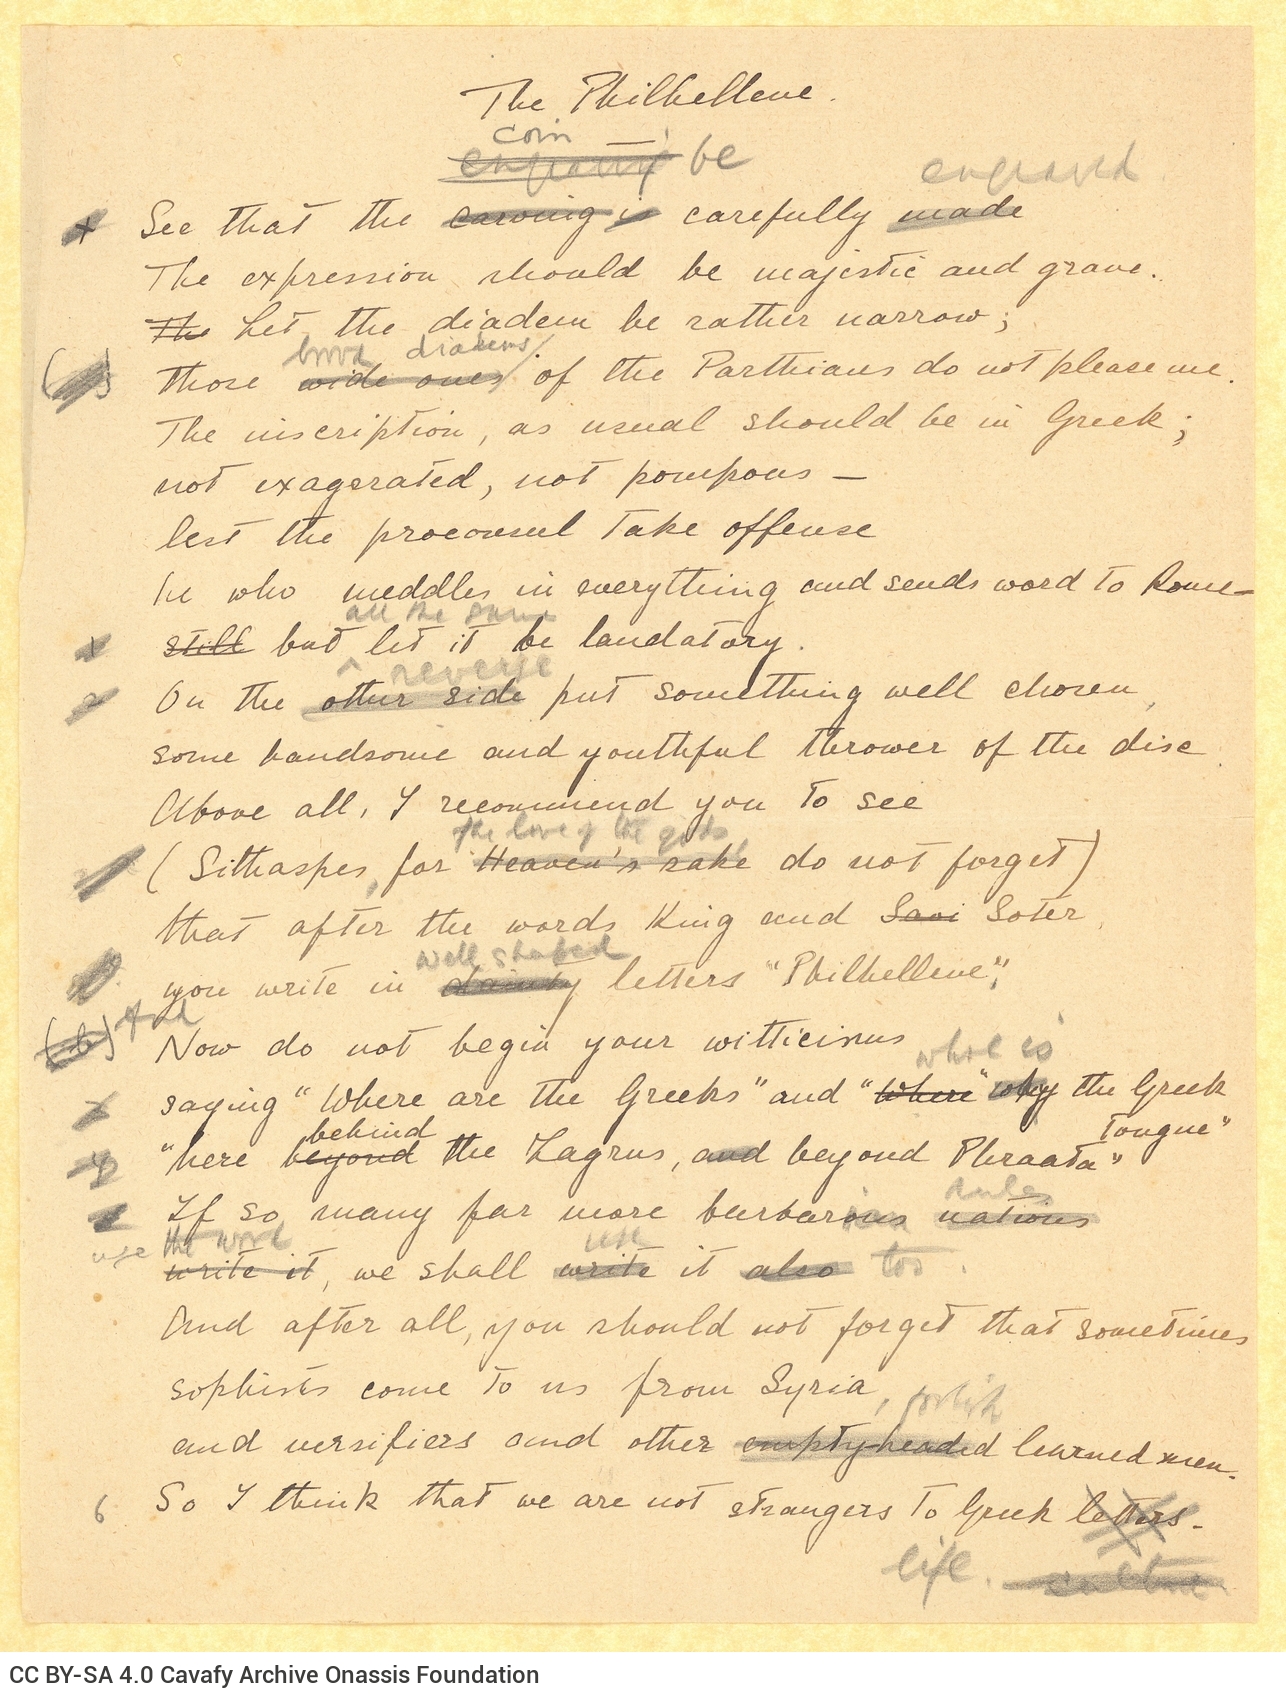 The Philhellene.
coin
engraving be engraved
See that the carving is carefully made
The expression should be majestic and grave.
The Let the diadem be rather narrow;
broad diadems
those wide ones of the Parthians do not please me.
The inscription, as usual should be in Greek;
not exagerated, not pompous —
lest the proconsul take offense
he who meddles in everything and sends word to Rome—
all the same
still but let it be laudatory.
reverse
On the other side put something well chosen,
some handsome and youthful thrower of the disc.
Above all, I recommend you to see
the love of the gods,
(Sithaspes, for Heaven's sake do not forget)
that after the words King and Savi Soter,
well shaped
you write in dainty letters "Philhellene";
And
Now do not begin your witticisms
what is
saying "Where are the Greeks" and "Where" why the Greek
behind Tongue"
"here beyond the Zagrus, and beyond Phraata"
rules
If so many far more barbarous nations
use the word use
write it, we shall write it also too.
And after all, you should not forget that sometimes
sophists come to us from Syria,
and versifiers and other emptyheaded learned men.
6 So I think that we are not strangers to Greek letters.
life. culture
CC BY-SA 4.0 Cavafy Archive Onassis Foundation